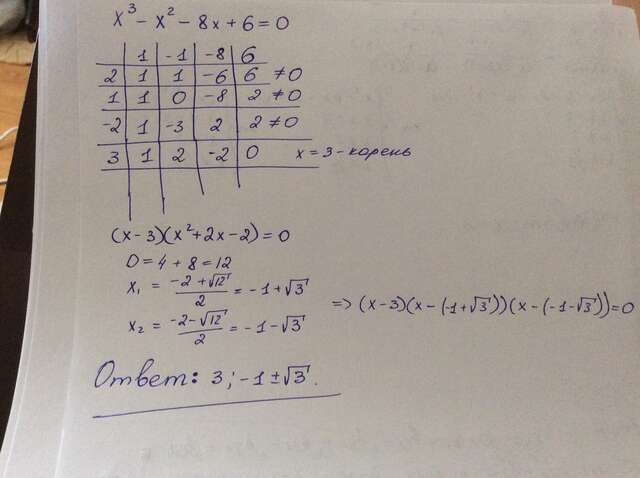 x³ - x² - 8x + 6 = 0
1 -1 -8 6
2 1 1 -6 6 ≠0
1 1 0 -8 2 ≠0
-2 1 -3 2 2 ≠0
3 1 2 -2 0 x = 3 - корень
(x-3)(x²+2x-2)=0
D=4+8=12
x₁ = (-2+√12)/2 = -1+√3
x₂ = (-2-√12)/2 = -1-√3
=> (x-3)(x-(-1+√3))(x-(-1-√3))=0
Ответ: 3; -1±√3.